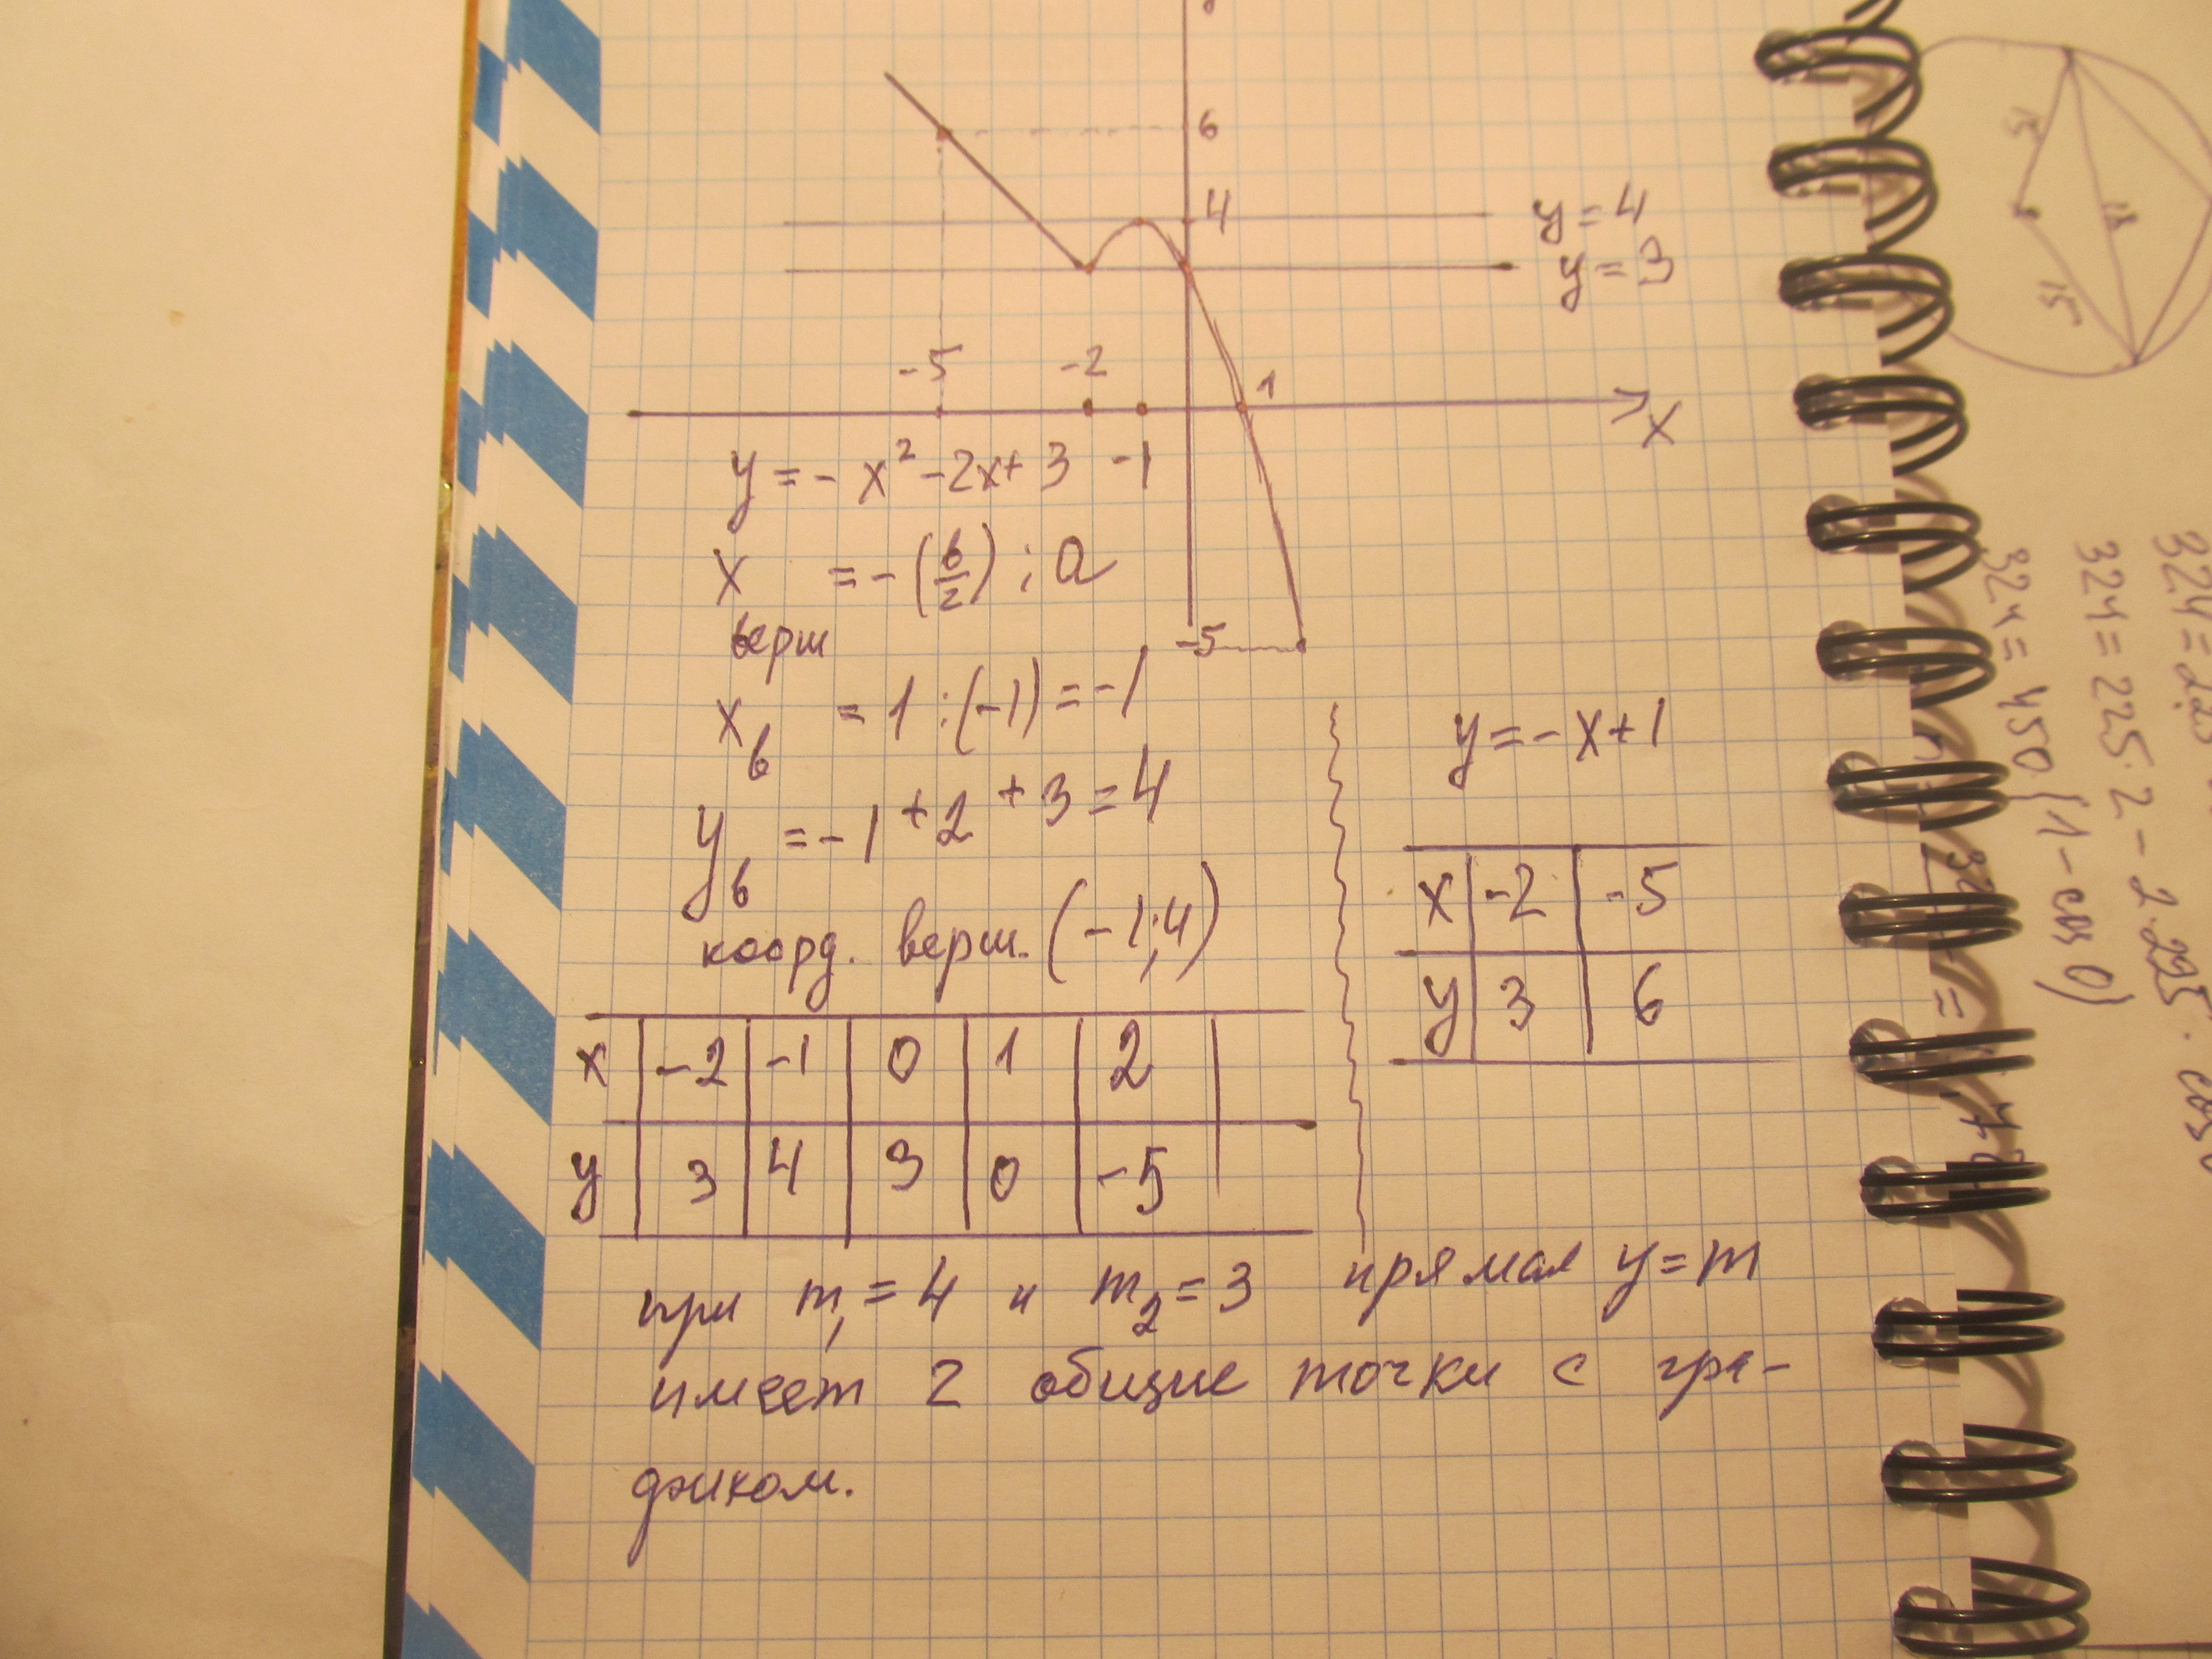 6
4
y=4
y=3
-5
-2
1
x
y=-x²-2x+3
-1
x верш = -(b/2) : a
-5
x в = 1:(-1)=-1
y в = -1+2+3=4
коорд. верш. (-1;4)
y=-x+1
x -2 -5
y 3 6
x -2 -1 0 1 2
y 3 4 3 0 -5
при m₁=4 и m₂=3 прямая y=m
имеет 2 общие точки с гра-
фиком.
15
18
15
324=225·2-2·225·cos
324=450(1-cos O)